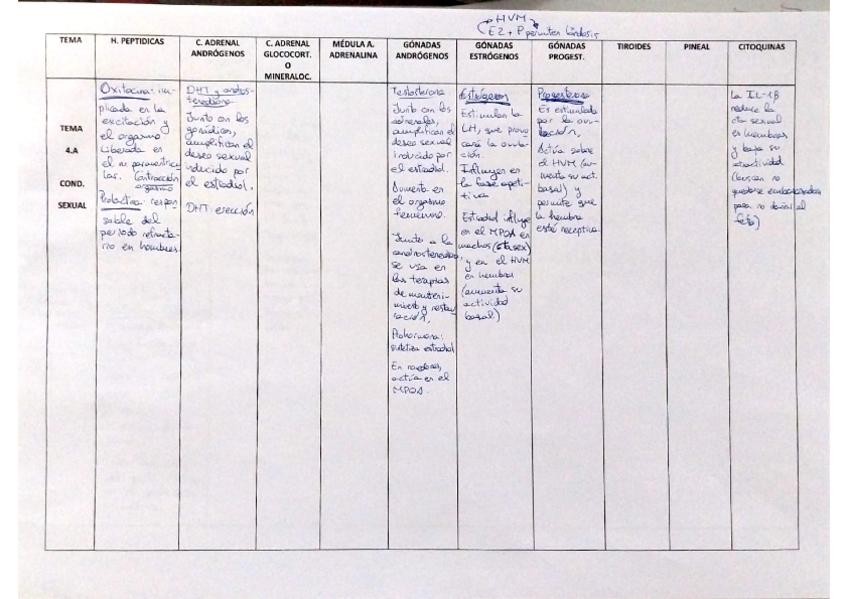 HVM
E2 + P permiten lórdosis
TEMA
H. PEPTIDICAS
C. ADRENAL
ANDRÓGENOS
C. ADRENAL
GLOCOCORT.
O
MINERALOC.
MÉDULA A.
ADRENALINA
GÓNADAS
ANDRÓGENOS
GÓNADAS
ESTRÓGENOS
GÓNADAS
PROGEST.
TIROIDES
PINEAL
CITOQUINAS
TEMA
4.A
COND.
SEXUAL
Oxitocina: im-
plicada en la
excitación y
el orgasmo
Liberada en
el n. paraventricu
lar. Contracción
orgasmo
Prolactina: respon
sable del
periodo refracta-
rio en hombres
DHT y andros-
tenediona
Junto con los
gonadios,
amplifican el
deseo sexual
inducido por
el estradiol.
DHT: erección
Testosterona
Junto con los
adrenales,
amplifican el
deseo sexual
inducido por
el estradiol.
Aumenta en
el orgasmo
femenino.
Junto a la
androstenediona,
se usa en
las terapias
de manteni-
miento y restau
ración.
Prohormona:
sintetiza estradiol
En roedores,
actúa en el
MPOA.
Estrógenos
Estimulan la
LH, que provo
cará la ovula-
ción.
Influyen en
la fase apeti-
tiva
Estradiol influye
en el MPOA en
machos (cta sex)
y en el HVM
en hembras
(aumenta su
actividad
basal)
Progesterona
Es estimulada
por la ovu-
lación.
Actúa sobre
el HVM (au-
menta su act.
basal) y
permite que
la hembra
esté receptiva
La IL-1β
reduce la
cta sexual
en hembras
y baja su
atractividad
(buscan no
quedarse embarazadas
para no dañar al
feto)